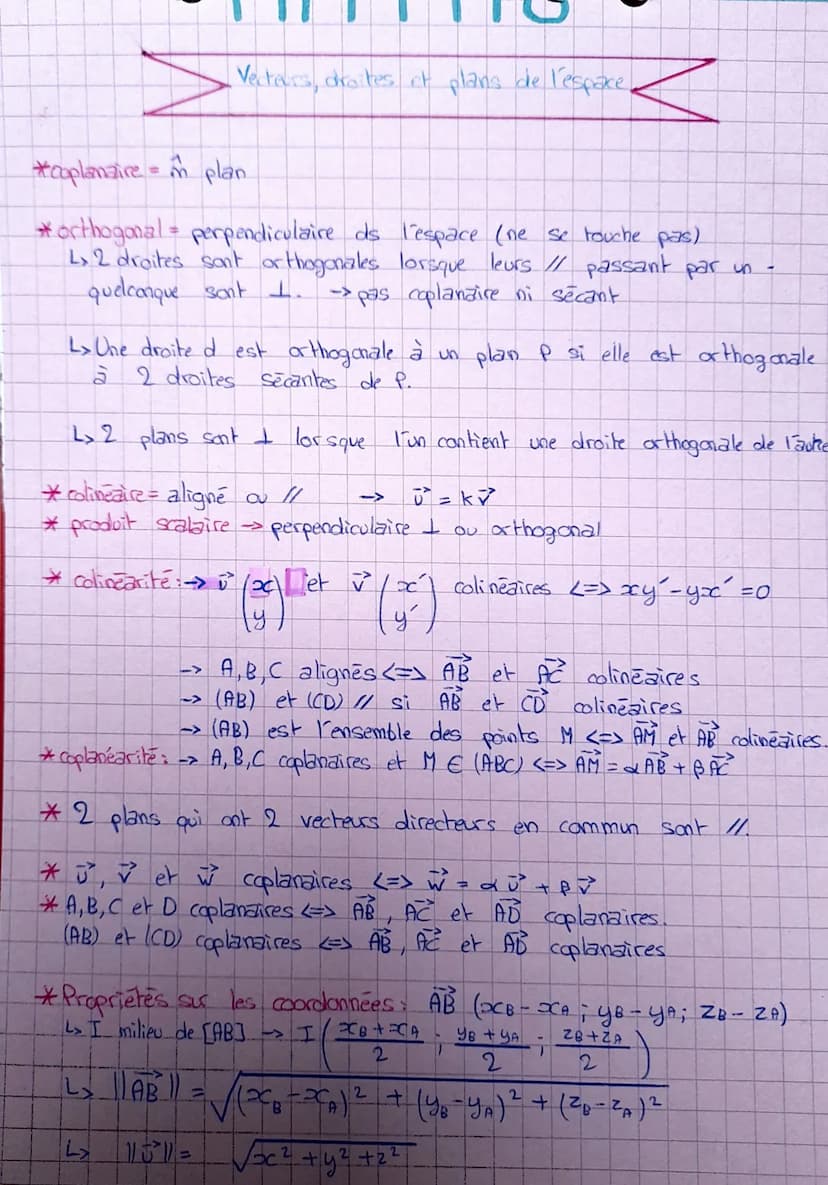 Vecteurs, droites et plans de l'espace
*coplanaire = m̂ plan
*orthogonal = perpendiculaire ds l'espace (ne se touche pas)
↳ 2 droites sont orthogonales lorsque leurs // passant par un -
quelconque sont ⊥. → pas coplanaire ni sécant
↳ Une droite d est orthogonale à un plan P si elle est orthogonale
à 2 droites sécantes de P.
↳ 2 plans sont ⊥ lorsque l'un contient une droite orthogonale de l'autre
* colinéaire = aligné ou // → u⃗ = kv⃗
* produit scalaire → perpendiculaire ⊥ ou orthogonal
* colinéarité : → u⃗ (x y) et v⃗ (x' y') colinéaires <=> xy' - yx' = 0
→ A,B,C alignés <=> AB⃗ et AC⃗ colinéaires
→ (AB) et (CD) // si AB⃗ et CD⃗ colinéaires
→ (AB) est l'ensemble des points M <=> AM⃗ et AB⃗ colinéaires.
* coplanéarité : → A,B,C coplanaires et M ∈ (ABC) <=> AM⃗ = αAB⃗ + βAC⃗
* 2 plans qui ont 2 vecteurs directeurs en commun sont //.
* u⃗, v⃗ et w⃗ coplanaires <=> w⃗ = αu⃗ + βv⃗
* A,B,C et D coplanaires <=> AB⃗, AC⃗ et AD⃗ coplanaires.
(AB) et (CD) coplanaires <=> AB⃗, AC⃗ et AD⃗ coplanaires
* Propriétés sur les coordonnées : AB⃗ (xB - xA ; yB - yA ; zB - zA)
↳ I milieu de [AB] → I ((xB + xA)/2 ; (yB + yA)/2 ; (zB + zA)/2)
↳ ||AB⃗|| = √((xB - xA)² + (yB - yA)² + (zB - zA)²)
↳ ||u⃗|| = √(x² + y² + z²)